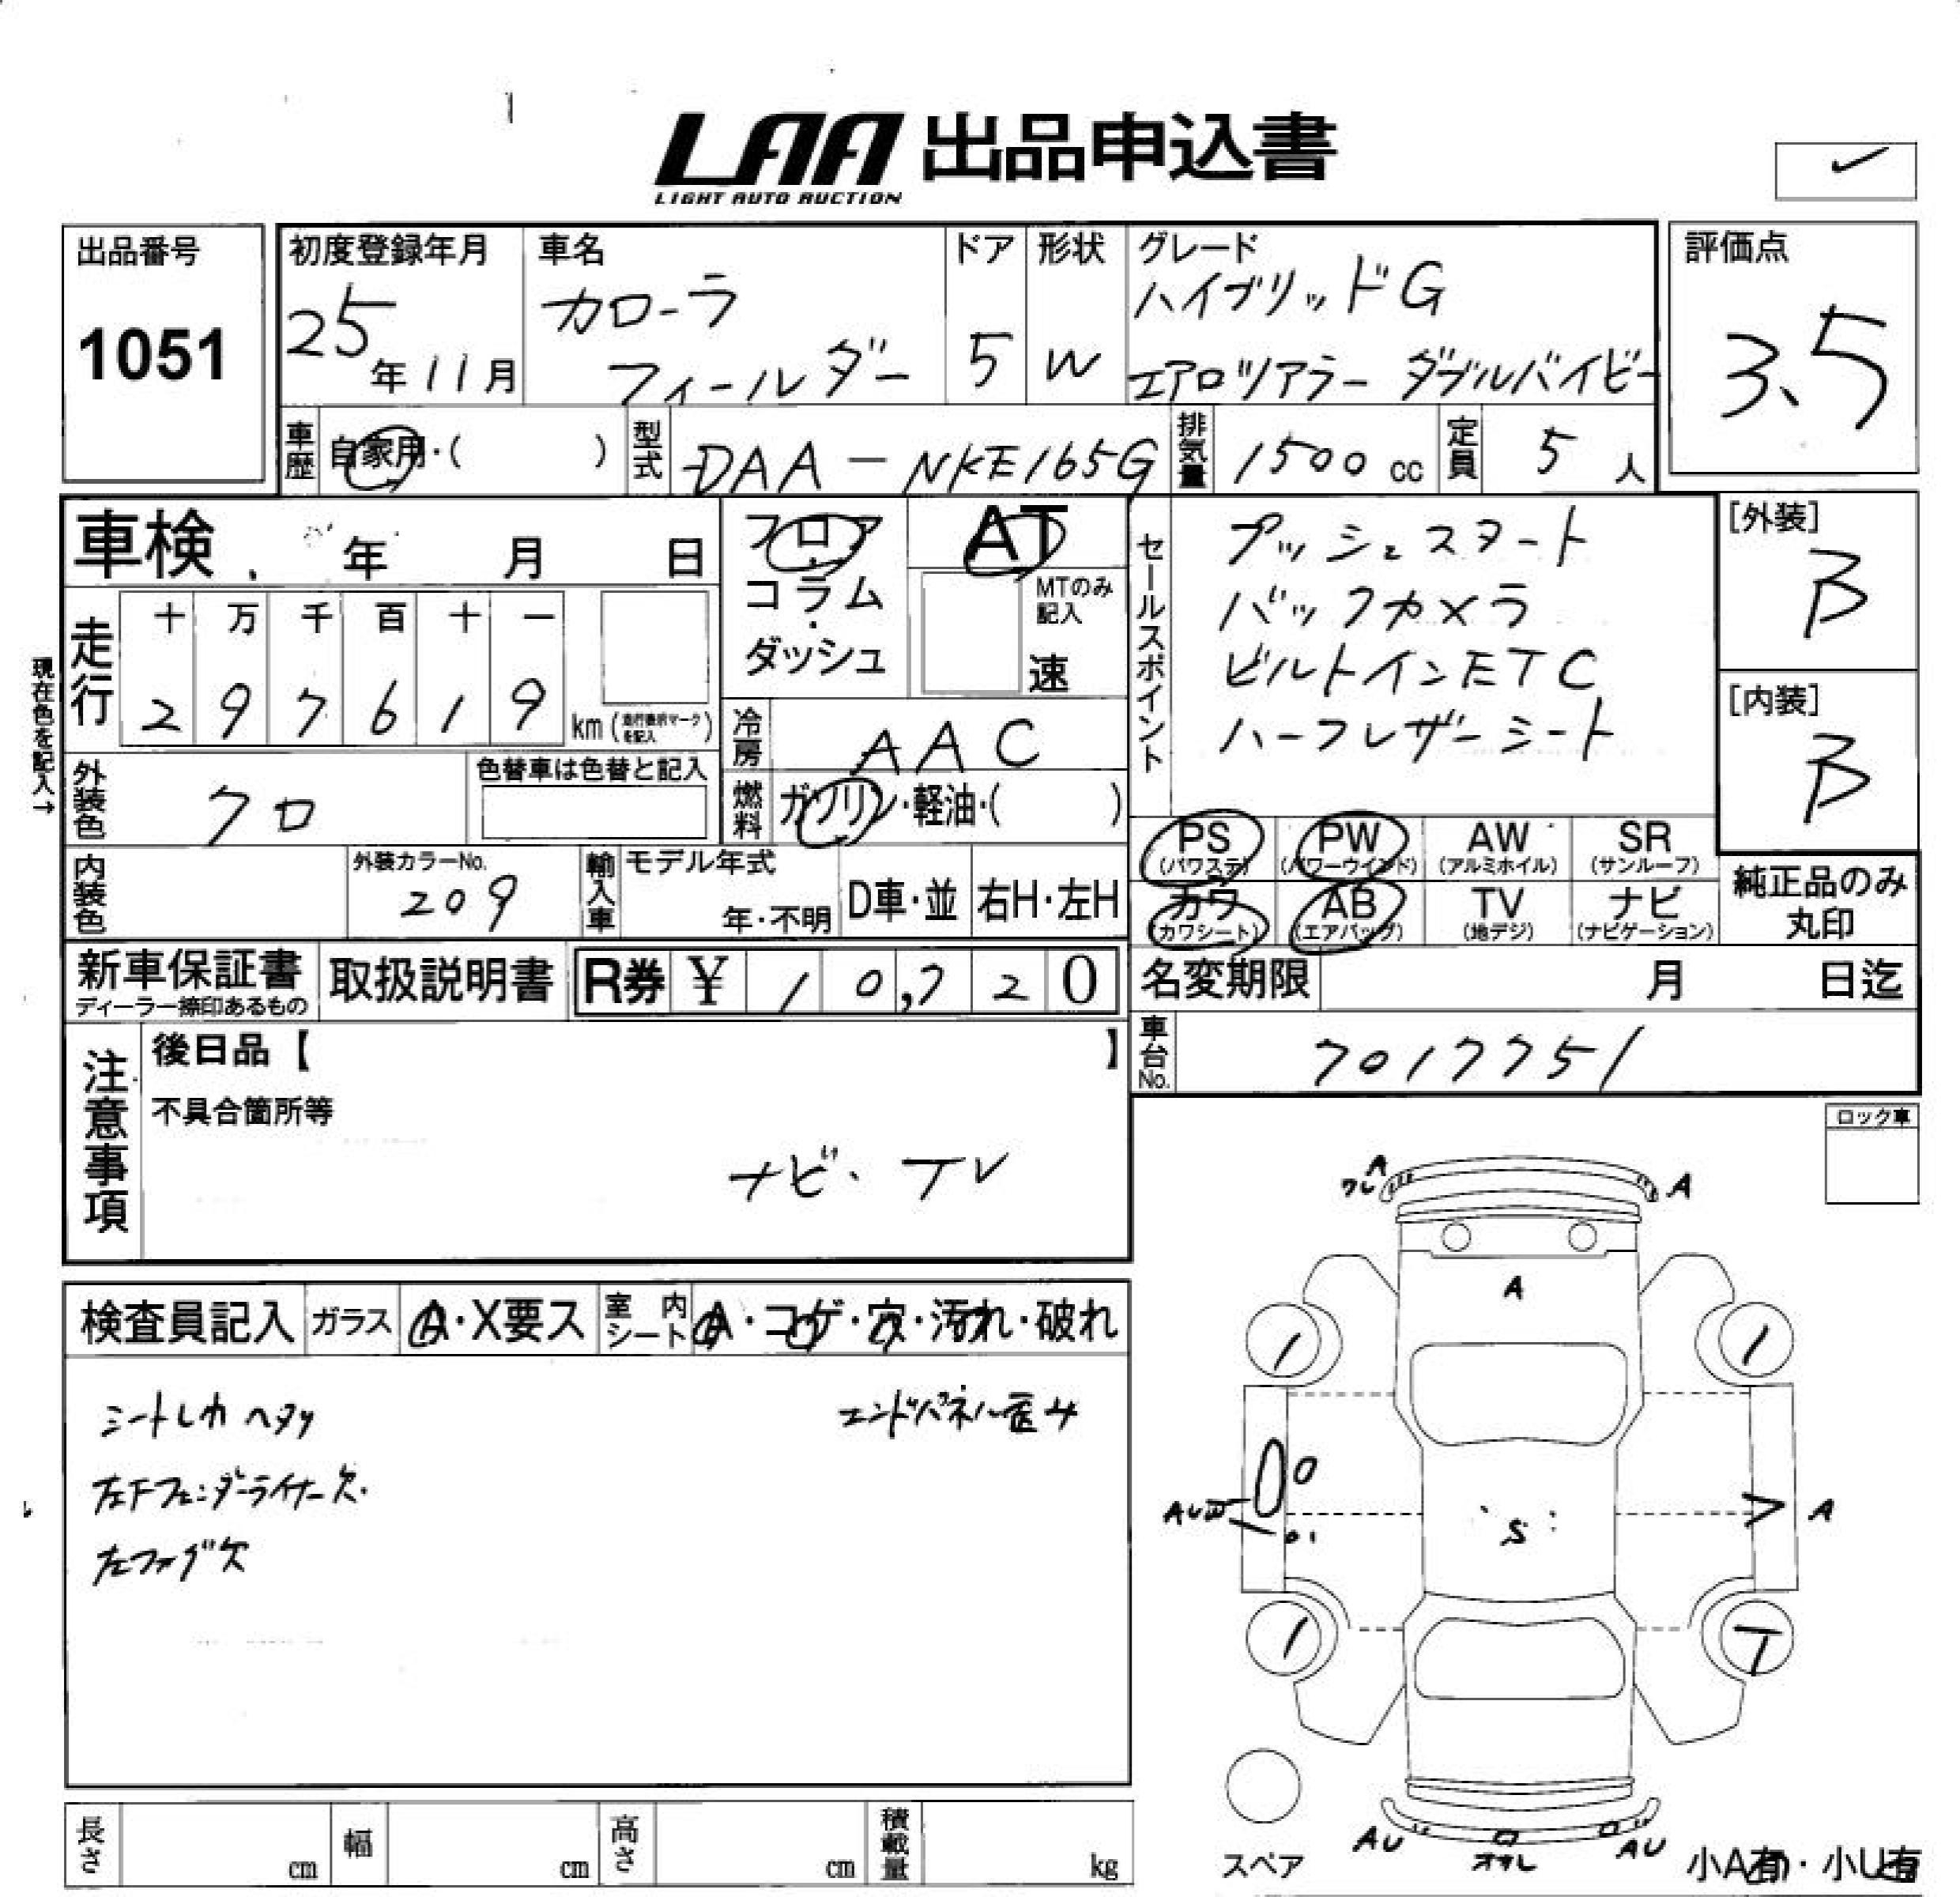 LAA 出品申込書
LIGHT AUTO AUCTION
出品番号
1051
初度登録年月
25年11月
車名
カローラ
フィールダー
ドア
5
形状
W
グレード
ハイブリッドG
エアロツアラー ダブルバイビー
評価点
3.5
車歴 自家用・( )
型式 DAA-NKE165G
排気量 1500cc
定員 5人
車検 年 月 日
フロア・コラム・ダッシュ
AT
MTのみ記入
速
セールスポイント
プッシュスタート
バックカメラ
ビルトインETC
ハーフレザーシート
[外装]
B
[内装]
B
現在色を記入→
走行
十 万 千 百 十 一
2 9 7 6 1 9 km (走行表示マークを記入)
冷房 AAC
外装色 クロ
色替車は色替と記入
燃料 ガソリン・軽油・( )
PS (パワステ)
PW (パワーウインド)
AW (アルミホイル)
SR (サンルーフ)
内装色
外装カラーNo.
209
輸入車
モデル年式
年・不明
D車・並
右H・左H
カワ (カワシート)
AB (エアバッグ)
TV (地デジ)
ナビ (ナビゲーション)
純正品のみ
丸印
新車保証書
ディーラー捺印あるもの
取扱説明書
R券 ¥10,720
名変期限 月 日迄
車台No. 7017751
注意事項
後日品【 】
不具合箇所等
ナビ・TV
ロック車
検査員記入 ガラス A・X要ス 室内シート A・コゲ・穴・汚れ・破れ
シートレカ ヘタリ
エンドパネル凹4
左Fフェンダーライナー欠.
左フォグ欠
A
ワレ
A
A
A
S
1
1
1
T
AU
オサレ
AU
スペア
小A有・小U有
長さ cm
幅 cm
高さ cm
積載量 kg